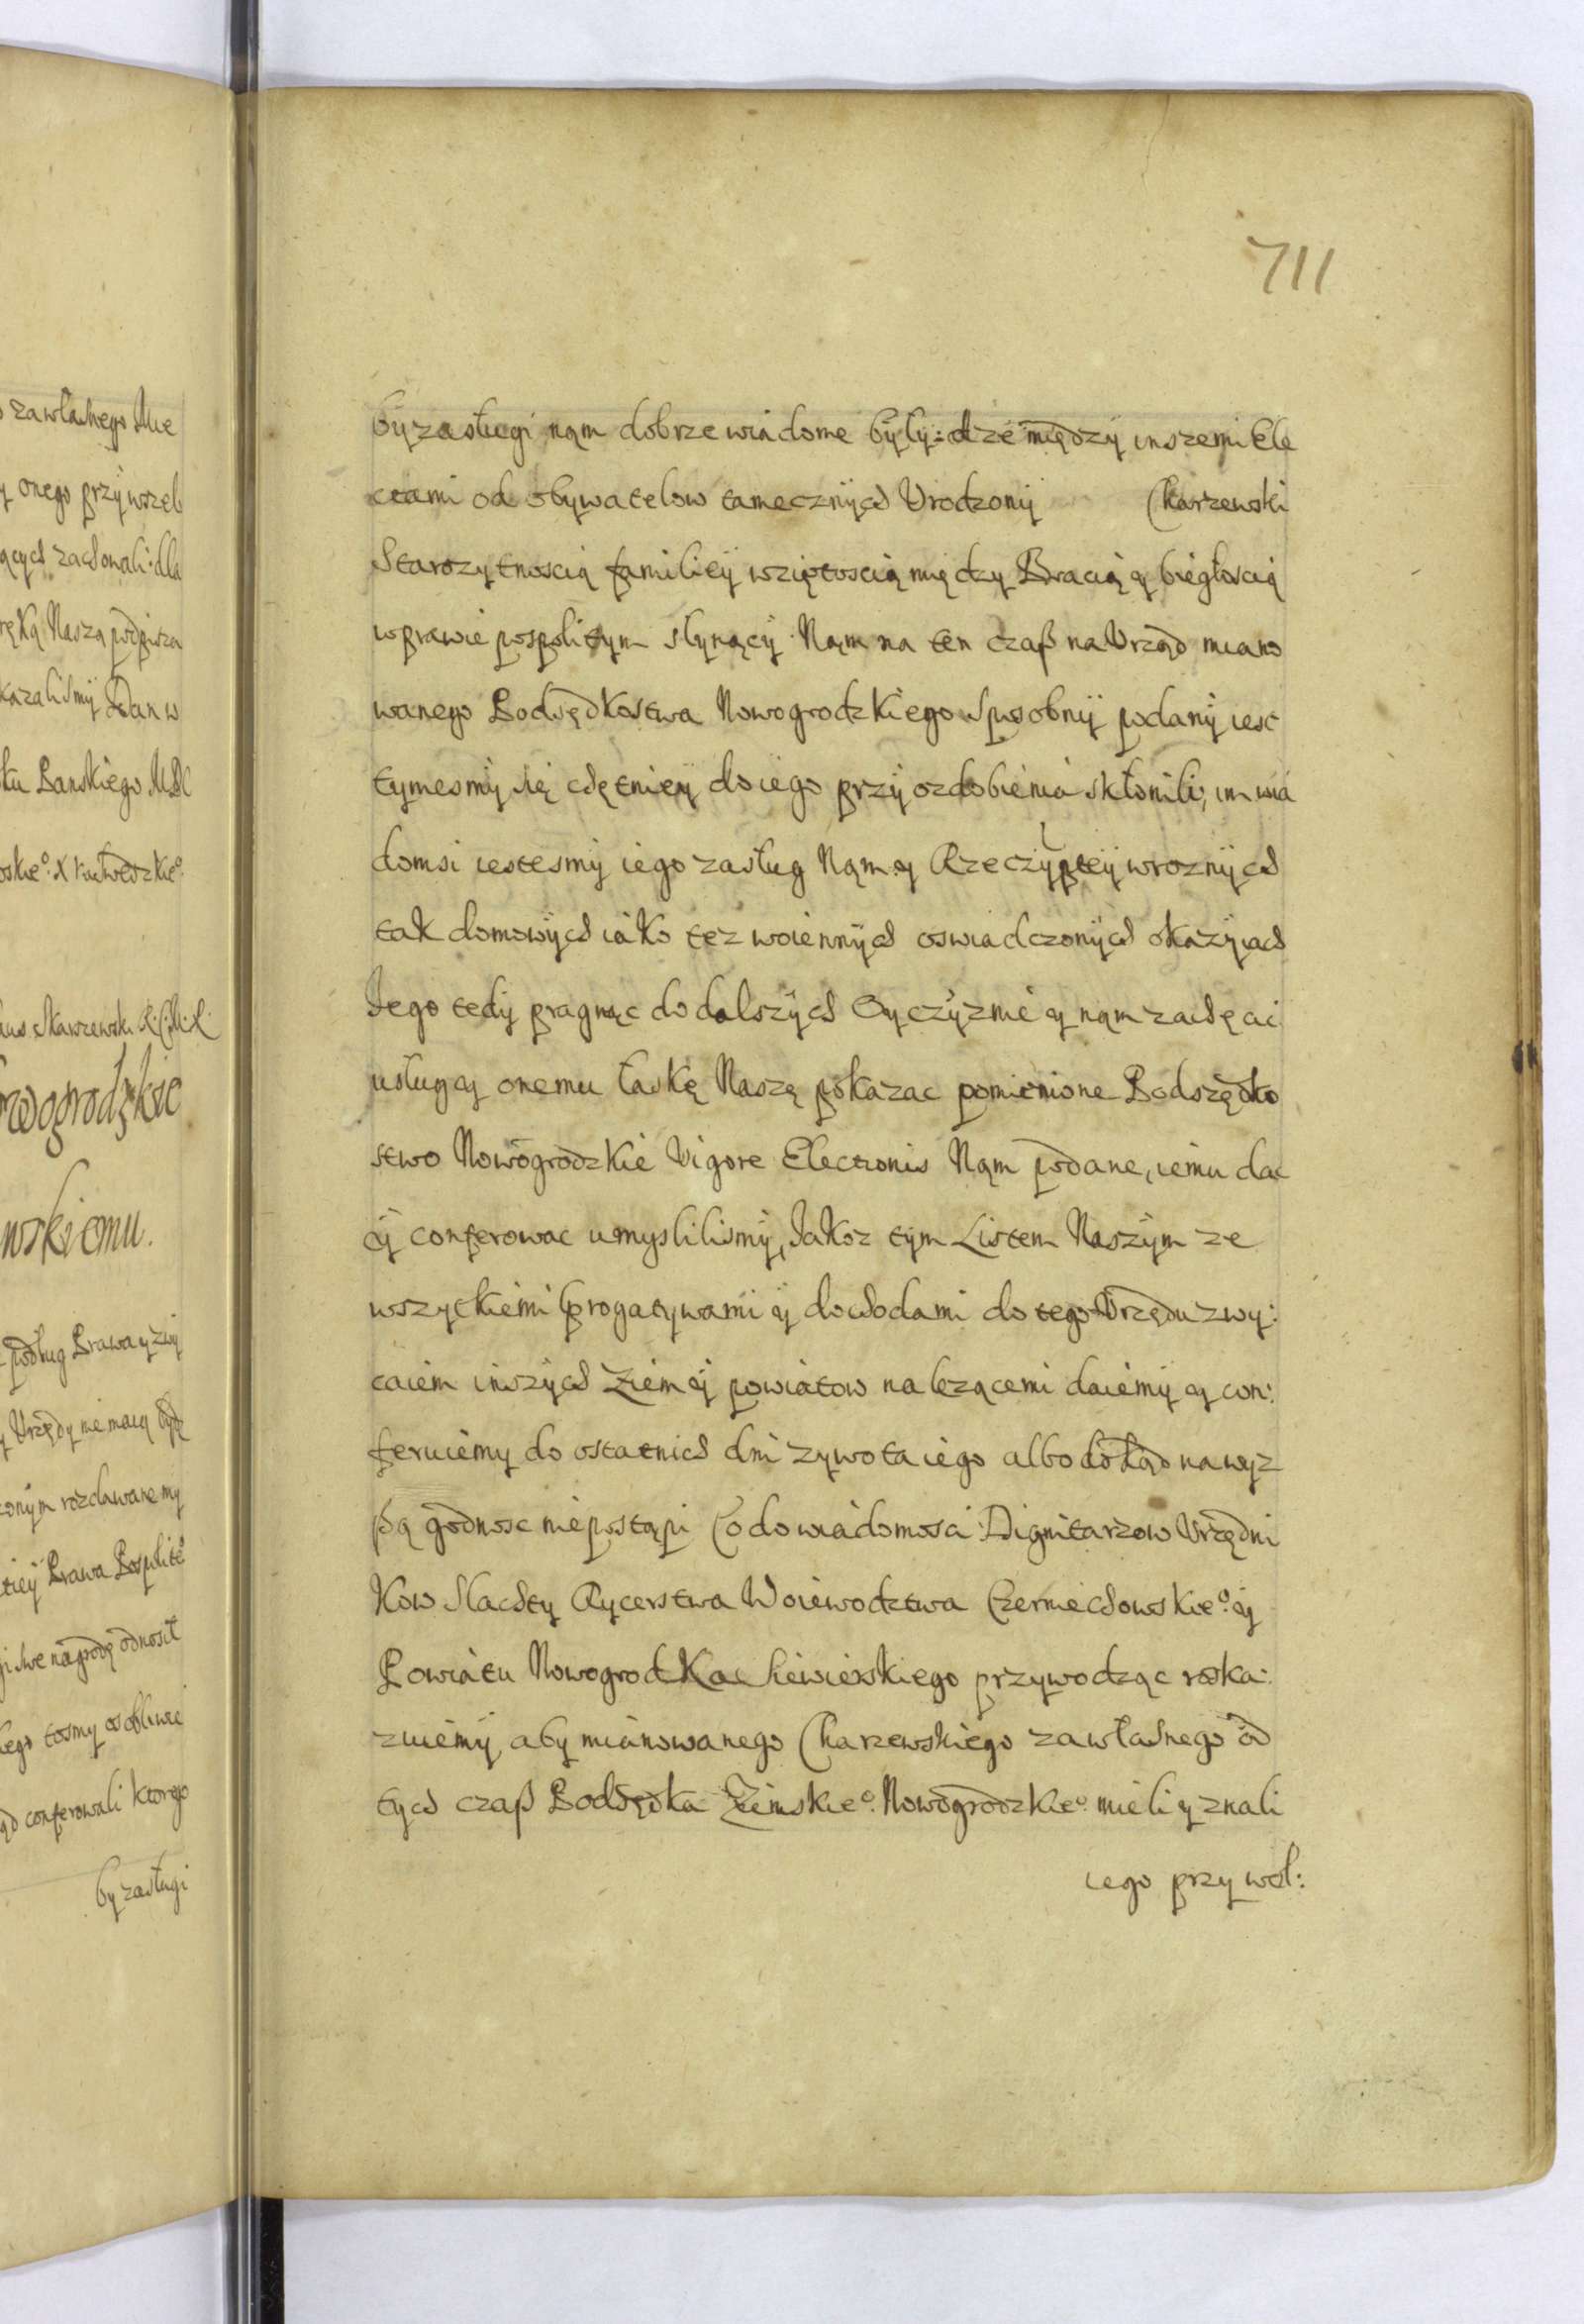 711
by zasługi nąm dobrze wiadome były: A że między inszemi Ele
ctami od obywatelow tamecznych Vrodzony Charzewski
Starożytnoscią familiey wziętoscią między Bracią y biegłoscią
w prawie pospolitym słynący Nąm na ten czaß na Vrząd miano
wanego Podsędkostwa Nowogrodzkiego sposobny podany iest
tymesmy się chętniey do iego przyozdobienia skłonili, im wia
domsi iestesmy iego zasług Nąm y Rzeczypltey w roznych
tak domowych iako tez woiennych oswiadczonych okazyiach
Iego tedy pragnąc do dalszych Oyczyznie y nąm zachęcic
usług y onemu łaskę Naszę pokazac pomienione Podszędko
stwo Nowogrodzkie Vigore Electionis Nąm podane, iemu dac
y conferowac umyslilismy, Iakoz tym Listem Naszym ze
wszytkiemi prerogatywami y dochodami do tego Vrzędu zwy:
caiem inszych Ziem y powiatow nalezącemi daiemy y con:
feruiemy do ostatnich dni zywota iego albo dokąd na wyz
ßą godnosc nie postąpi Co do wiadomosci Dignitarzow Vrzędni
kow Slachty Rycerstwa Woiewodztwa Czerniechowskieº: y
Powiatu Nowogrodka Siewierskiego przywodząc roska:
zuiemy, aby mianowanego Charzewskiego za własnego od
tych czaß Podsędka Ziemskieº. Nowogrodzkieº mieli y znali
iego przy wsl:
o za własnego Mie
y onego przy wszel
ących zachowali: dla
ręką Naszą podpisza
kazalismy Dan w
Panskiego MDC
Skarzewski
wogrodzkie
wskiemu.
podług Prawa y zwy
y Vrzędy nie maią bydz
onym rozdawane my
Prawa Pospolite
swe nagrodę odnosił
iego tosmy osobliwie
conferowali ktorego
by zasługi